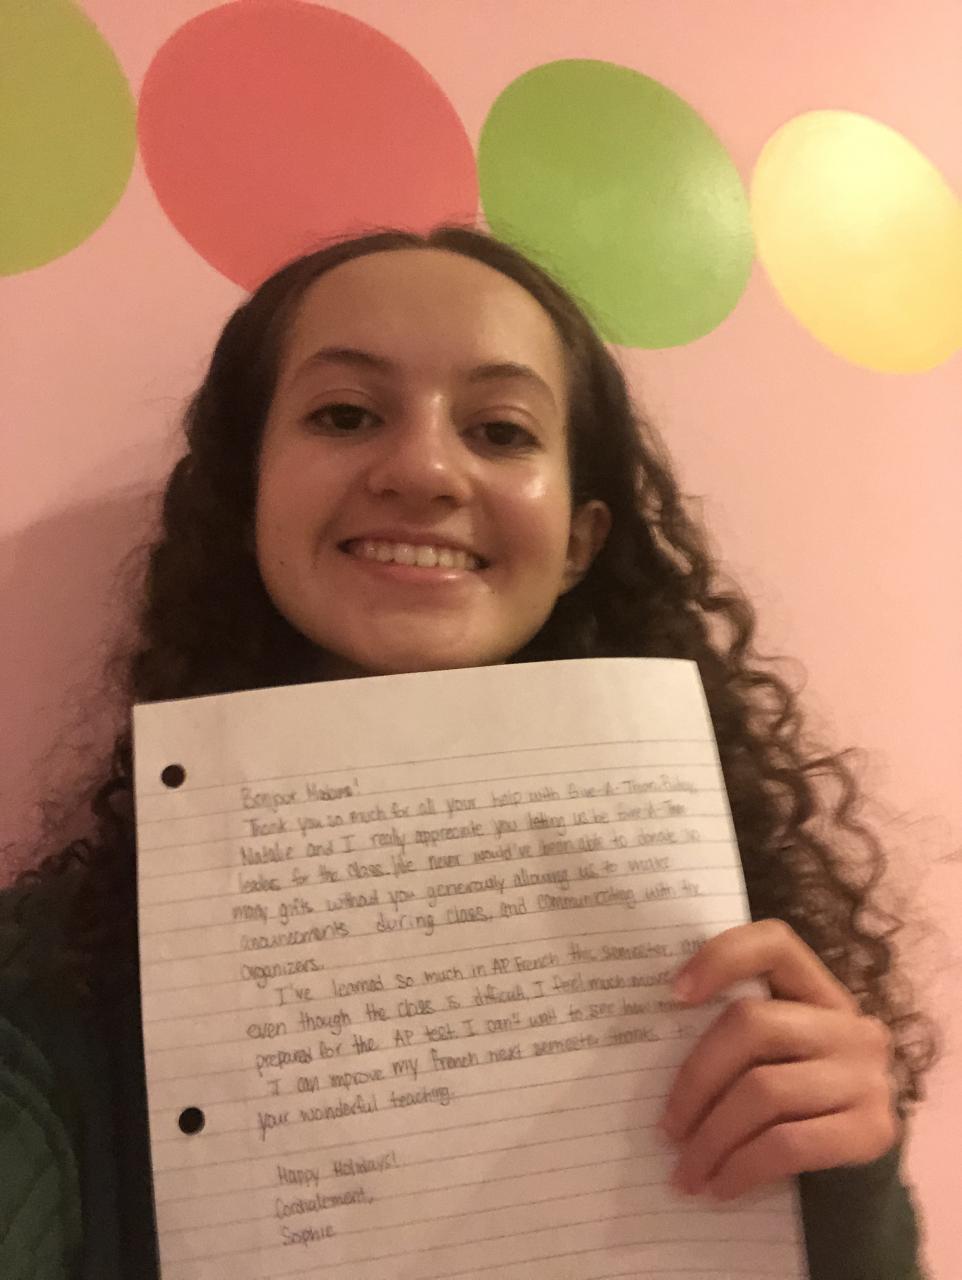 Bonjour Madame!
Thank you so much for all your help with Give-A-Thon. Riley,
Natalie and I really appreciate you letting us be Give-A-Thon
leaders for the class. We never would've been able to donate so
many gifts without you generously allowing us to make
anouncements during class, and communicating with the
organizers.
I've learned so much in AP French this semester, and
even though the class is difficult, I feel much more
prepared for the AP test. I can't wait to see how
I can improve my French next semester thanks to
your wonderful teaching.
Happy Holidays!
Cordialement,
Sophie